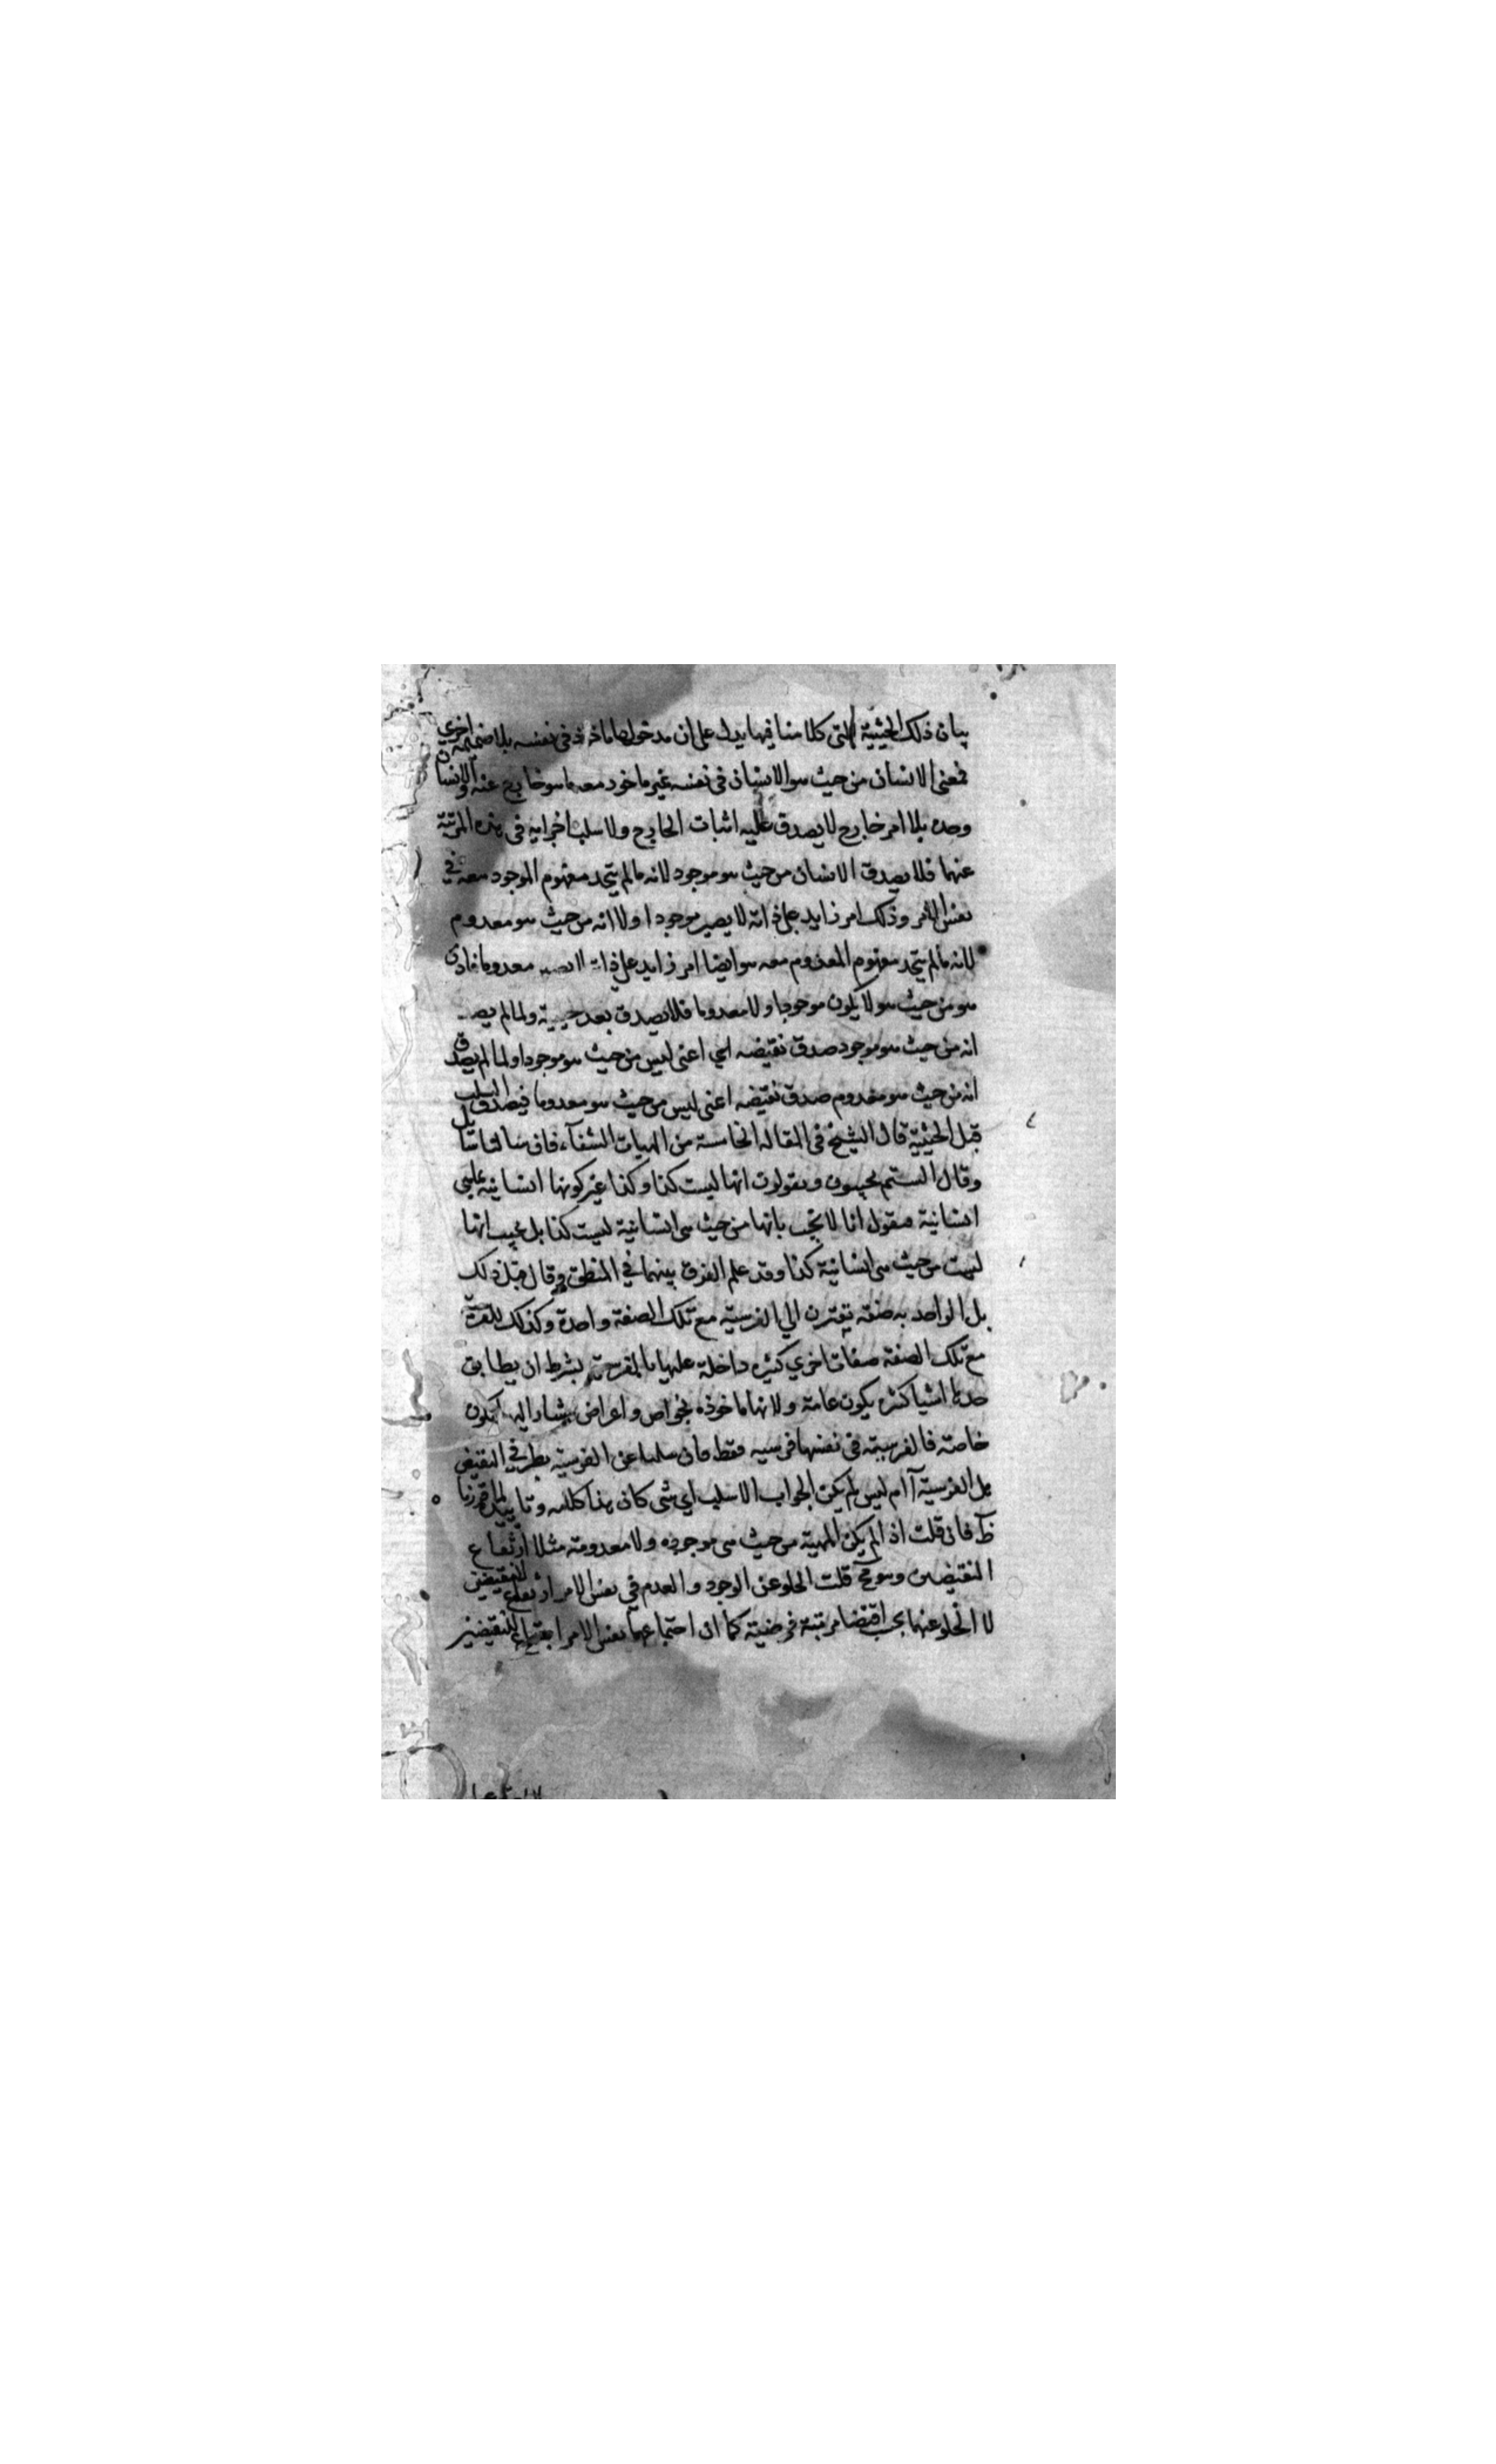 بيان ذلك الحيثية التى كلامنا فيها يدل على ان مدخولها ماخوذ فى نفسه بلا ضميمة اخرى
فمعنى الانسان من حيث هو الانسان فى نفسه غير ماخوذ معه ما هو خارج عنه والانسان
وحده بلا امر خارج لا يصدق عليه اثبات الخارج ولا سلب اخرايه فى هذه المرتبة
عنها فلا يصدق الانسان من حيث هو موجود لانه مالم يتحد مفهوم الموجود معه في
نفس الامر وذلك امر زايد على ذاته لا يصير موجودا ولا انه من حيث هو معدوم
لانه مالم يتحد مفهوم المعدوم معه هو ايضا امر زايد على ذاته لا يصير معدوما فاذن
هو من حيث هو لا يكون موجودا ولا معدوما فلا يصدق بعد حيثية ولما لم يصـ
انه من حيث هو موجود صدق نقيضه اعنى ليس من حيث هو موجودا ولما لم يصدق
انه من حيث هو معدوم صدق نقيضه اعنى ليس من حيث هو معدوما فيصدق السلب
قبل الحيثية قال الشيخ فى المقالة الخامسة من الهيات الشفآء فان سالنا سائل
وقال الستم تجيبون وتقولون انها ليست كذا وكذا غير كونها انسانية
انسانية فنقول انا لا نجيب بانها من حيث هى انسانية ليست كذا بل نجيب انها
ليست من حيث هى انسانية كذا وقد علم الفرق بينهما في المنطق وقال قبل ذلك
بل الواحد به صفة يقترن الي الفرسية مع تلك الصفة واحدة وكذلك للفرسية
مع تلك الصفة صفات اخري كثيره داخلة عليها بشرط ان يطابق
حدها اشيا كثيره يكون عامة ولانها ماخوذه بخواص واعراض يشار اليها يكون
خاصة فالفرسية فى نفسها فرسيه فقط فان سلنا عن الفرسية بطرفي النقيض
هل الفرسية آ ام ليس لم يكن الجواب الا سلب اي شى كان هذا كلامه وتاييد لما قررنا
ظ فان قلت اذ الم يكن المهية من حيث هى موجوده ولا معدومة مثلا ارتفاع
النقيضين وهو مح قلت الخلو عن الوجود والعدم في نفس الامر ارتفاع للنقيضين
لا الخلو عنهما بحسب اقتضا مرتبة فرضية كما ان اجتماعهما نفس الامر للنقيضين